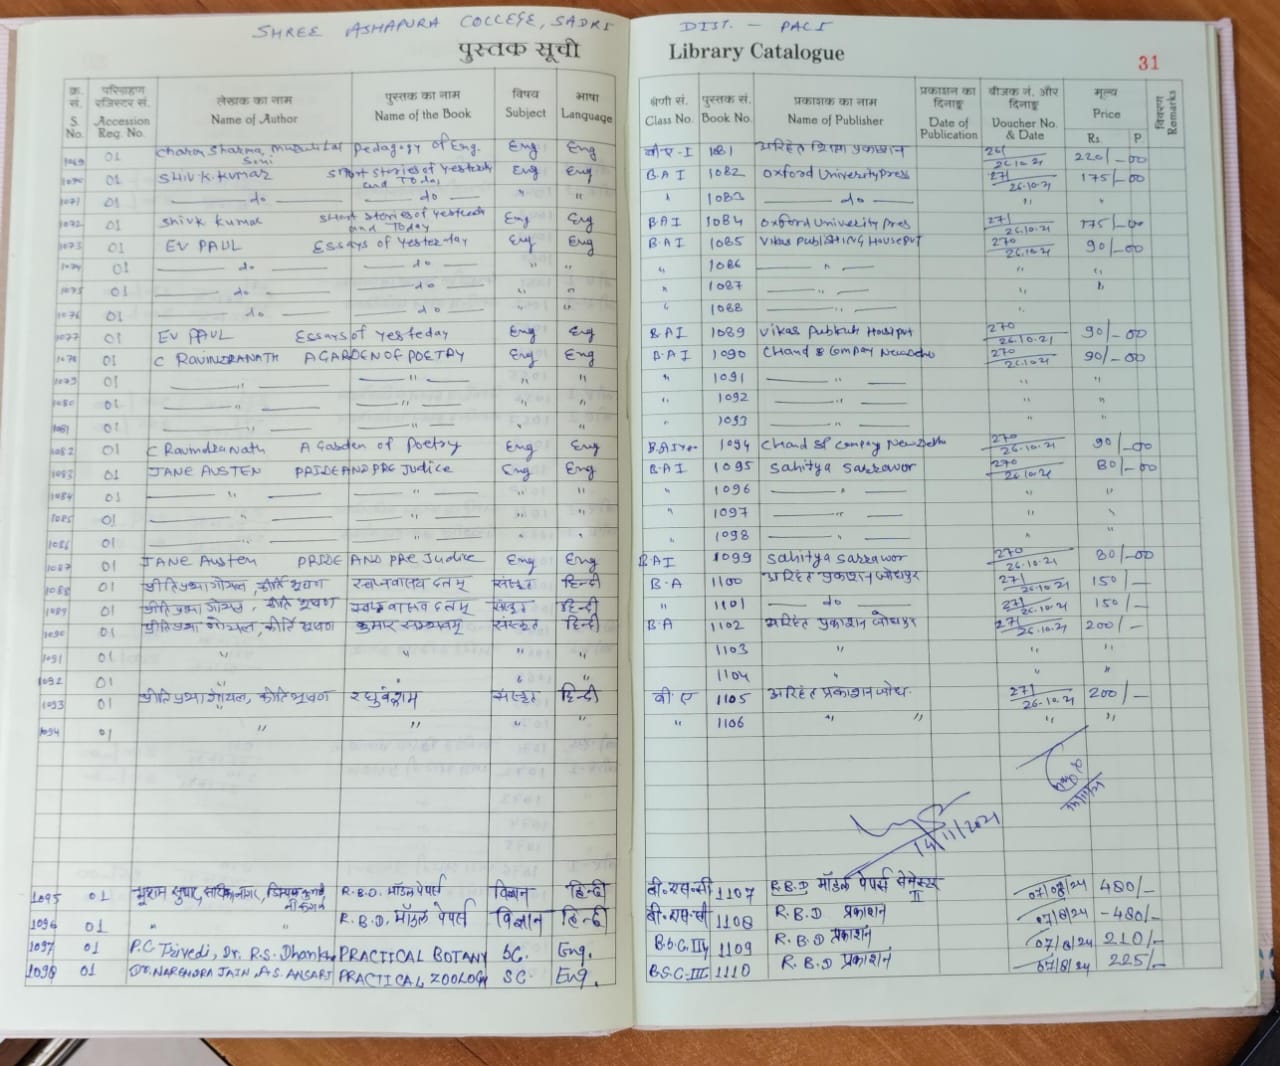 SHREE ASHAPURA COLLEGE, SADRI DIST. - PALI
पुस्तक सूची Library Catalogue 31
क्र. सं. S. No. परिग्रहण रजिस्टर सं. Accession Reg. No. लेखक का नाम Name of Author पुस्तक का नाम Name of the Book विषय Subject भाषा Language श्रेणी सं. Class No. पुस्तक सं. Book No. प्रकाशक का नाम Name of Publisher प्रकाशन का दिनाङ्क Date of Publication बीजक नं. और दिनाङ्क Voucher No. & Date मूल्य Price Rs. P. विवरण Remarks
1069 01 Charan Sharma, Soni Pedagogy of Eng. Eng Eng बी ए-I 1081 अरिहंत शिक्षा प्रकाशन 26.10.21 220/-00
1070 01 SHIV K. KUMAR Short stories of Yesterday and Today Eng Eng B A I 1082 Oxford University Press 271 26.10.21 175/-00
1071 01 — do — — do — " " " 1083 — do — " "
1072 01 Shiv K Kumar Short stories of Yesterday and Today Eng Eng B A I 1084 Oxford Univecity Pres 271 26.10.21 175/-00
1073 01 EV PAUL Essays of Yesterday Eng Eng B.A I 1085 Vikas PubliSHING House Pvt 270 26.10.21 90/-00
1074 01 — do — — do — " " " 1086 — " — " "
1075 01 — do — — do — " " " 1087 — " — " "
1076 01 — do — — do — " " " 1088 "
1077 01 EV PAUL Essays of Yesteday Eng Eng B.A I 1089 Vikas Publish House Pvt 270 26.10.21 90/-00
1078 01 C RAVINDRANATH A GARDEN OF POETRY Eng Eng B.A I 1090 Chand & Compay New Delhi 270 26.10.21 90/-00
1079 01 — " — — " — " " " 1091 — " — " "
1080 01 — " — — " — " " " 1092 — " — " "
1081 01 — " — — " — " " " 1093 — " — " "
1082 01 C Ravindra Nath A Garden of Poetry Eng Eng 1094 Chand & Compay New Delhi 270 26.10.21 90/-00
1083 01 JANE AUSTEN PRIDE AND PRE Judice Eng Eng B.A I 1095 Sahitya Sarrawor 270 26.10.21 80/-00
1084 01 — " — — " — " " " 1096 — " — " "
1085 01 — " — — " — " " " 1097 — " — " "
1086 01 — " — — " — " " " 1098 — " — " "
1087 01 JANE Austen PRIDE AND PRE Judice Eng Eng B A I 1099 Sahitya Sarrawor 270 26.10.21 80/-00
1088 01 प्रीतिप्रभा गोयल, कीर्ति भूषण स्वप्नवासवदत्तम् संस्कृत हिन्दी B.A 1100 अरिहंत प्रकाशन जोधपुर 271 26.10.21 150/-
1089 01 प्रीतिप्रभा गोयल, कीर्ति भूषण स्वप्नवासवदत्तम् संस्कृत हिन्दी " 1101 — do — 271 26.10.21 150/-
1090 01 प्रीतिप्रभा गोयल, कीर्ति भूषण कुमार सम्भवम् संस्कृत हिन्दी B A 1102 अरिहंत प्रकाशन जोधपुर 271 26.10.21 200/-
1091 01 " " " " 1103 " " "
1092 01 " " " 1104 " " "
1093 01 प्रीतिप्रभा गोयल, कीर्तिभूषण रघुवंशम् संस्कृत हिन्दी बी ए 1105 अरिहंत प्रकाशन जोध. 271 26.10.21 200/-
1094 01 " " " " " 1106 " " " "
14/11/2021
1095 01 R.B.D. मॉडल पेपर्स विज्ञान हिन्दी बी.एस.सी 1107 R.B.D मॉडल पेपर्स सेमेस्टर II 07/08/24 480/-
1096 01 " " R.B.D. मॉडल पेपर्स विज्ञान हिन्दी बी.एस.सी 1108 R.B.D प्रकाशन 07/8/24 480/-
1097 01 P.C Trivedi, Dr. R.S. Dhankhar PRACTICAL BOTANY SC. Eng. B.S.C. III 1109 R.B.D प्रकाशन 07/8/24 210/-
1098 01 Dr. NARENDRA JAIN, A.S. ANSARI PRACTICAL ZOOLOGY SC Eng. B.S.C-III 1110 R.B.D प्रकाशन 07/8/24 225/-